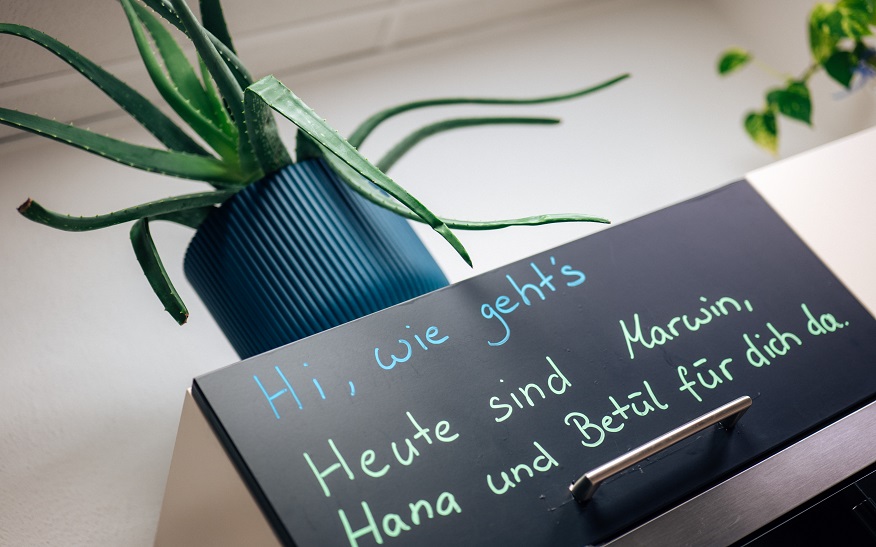 Hi, wie geht's
Heute sind Marwin,
Hana und Betül für dich da.